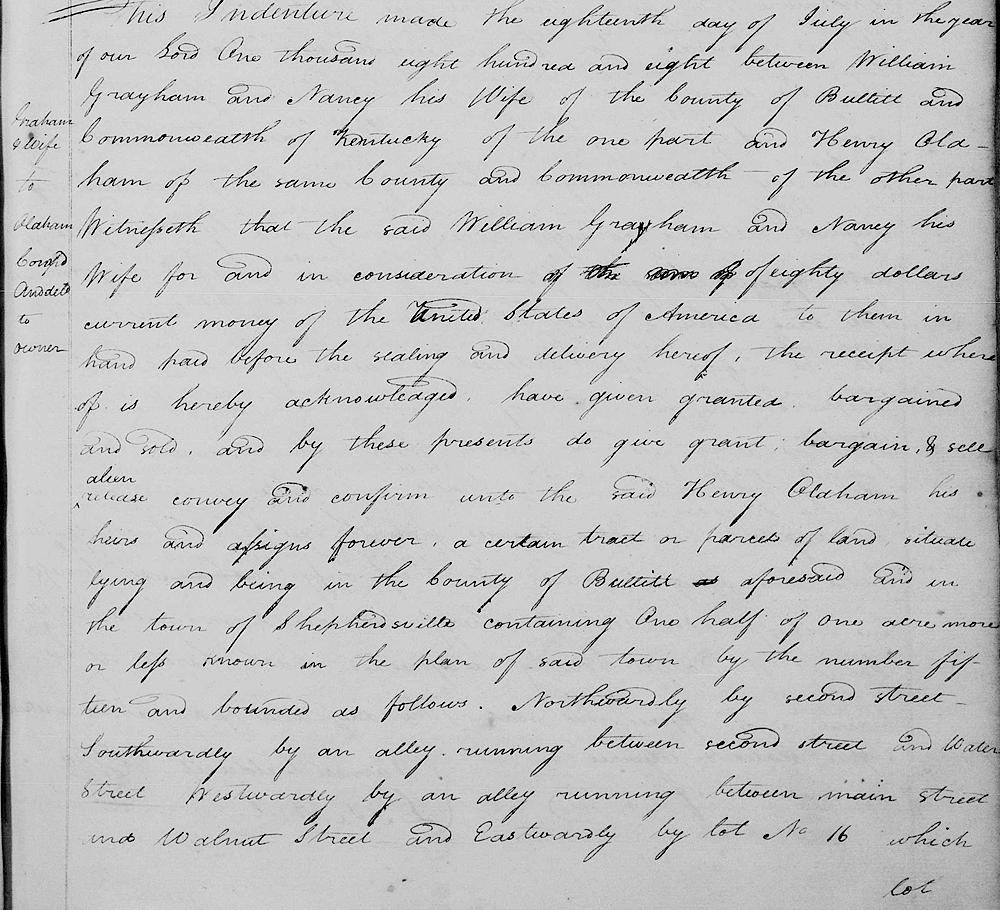 This Indenture made the eighteenth day of July in the year
of our Lord One thousand eight hundred and eight between William
Grayham and Nancy his Wife of the County of Bullitt and
Commonwealth of Kentucky of the one part and Henry Old-
ham of the same County and Commonwealth of the other part
Witnesseth that the said William Grayham and Nancy his
Wife for and in consideration of the sum of of eighty dollars
current money of the United States of America to them in
hand paid before the sealing and delivery hereof, the receipt where
of is hereby acknowledged, have given granted, bargained
and sold, and by these presents do give grant, bargain, & sell
alien
release convey and confirm unto the said Henry Oldham his
heirs and assigns forever, a certain tract or parcel of land, situate
lying and being in the County of Bullitt as aforesaid and in
the town of Shepherdsville containing One half of one acre more
or less known in the plan of said town by the number fif-
teen and bounded as follows. Northwardly by second street
Southwardly by an alley running between second street and Water
Street Westwardly by an alley running between main street
and Walnut Street and Eastwardly by lot No 16 which
lot
Graham
& Wife
to
Oldham
to
owner